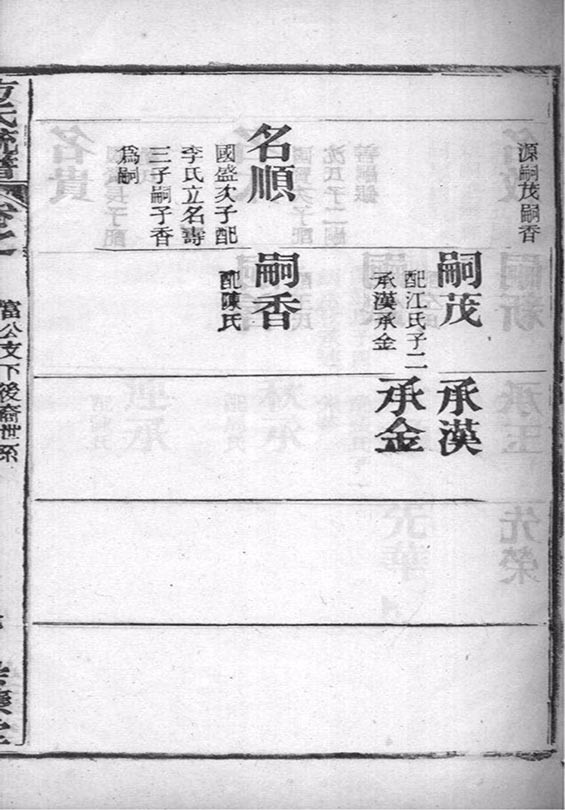 源嗣茂嗣香
名順
國盛次子配
李氏立名壽
三子嗣子香
爲嗣
嗣茂
配江氏子二
承漢承金
嗣香
配陳氏
承漢
承金
方氏統譜
富公支下後裔世系